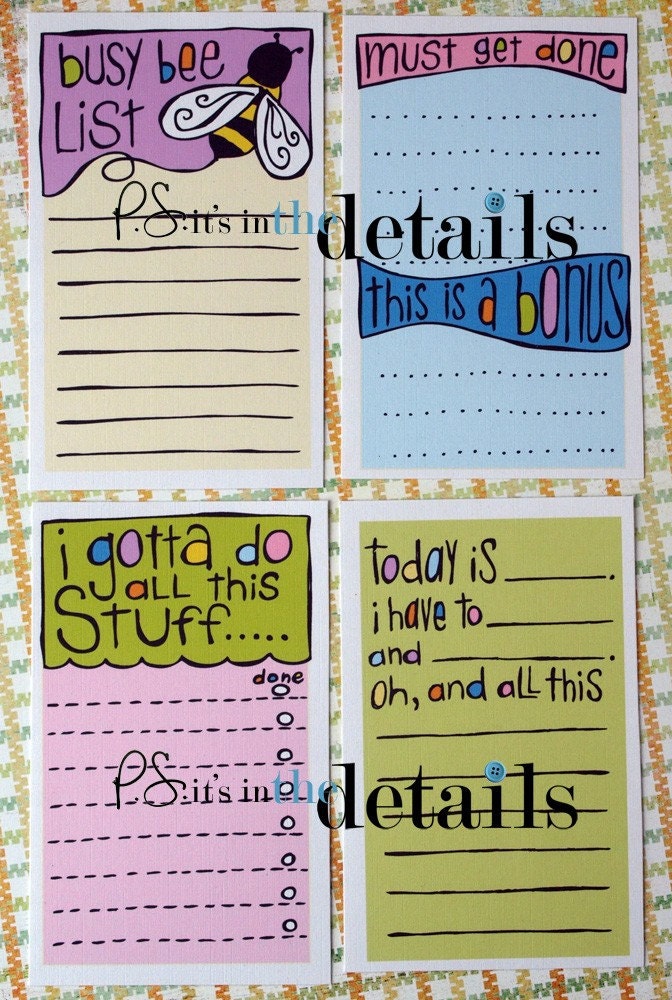 busy bee
List
must get done
P.S. it's in the details
this is a bonus
i gotta do
all this
Stuff.....
done
today is ______.
i have to ______
and ______.
oh, and all this
P.S. it's in the details